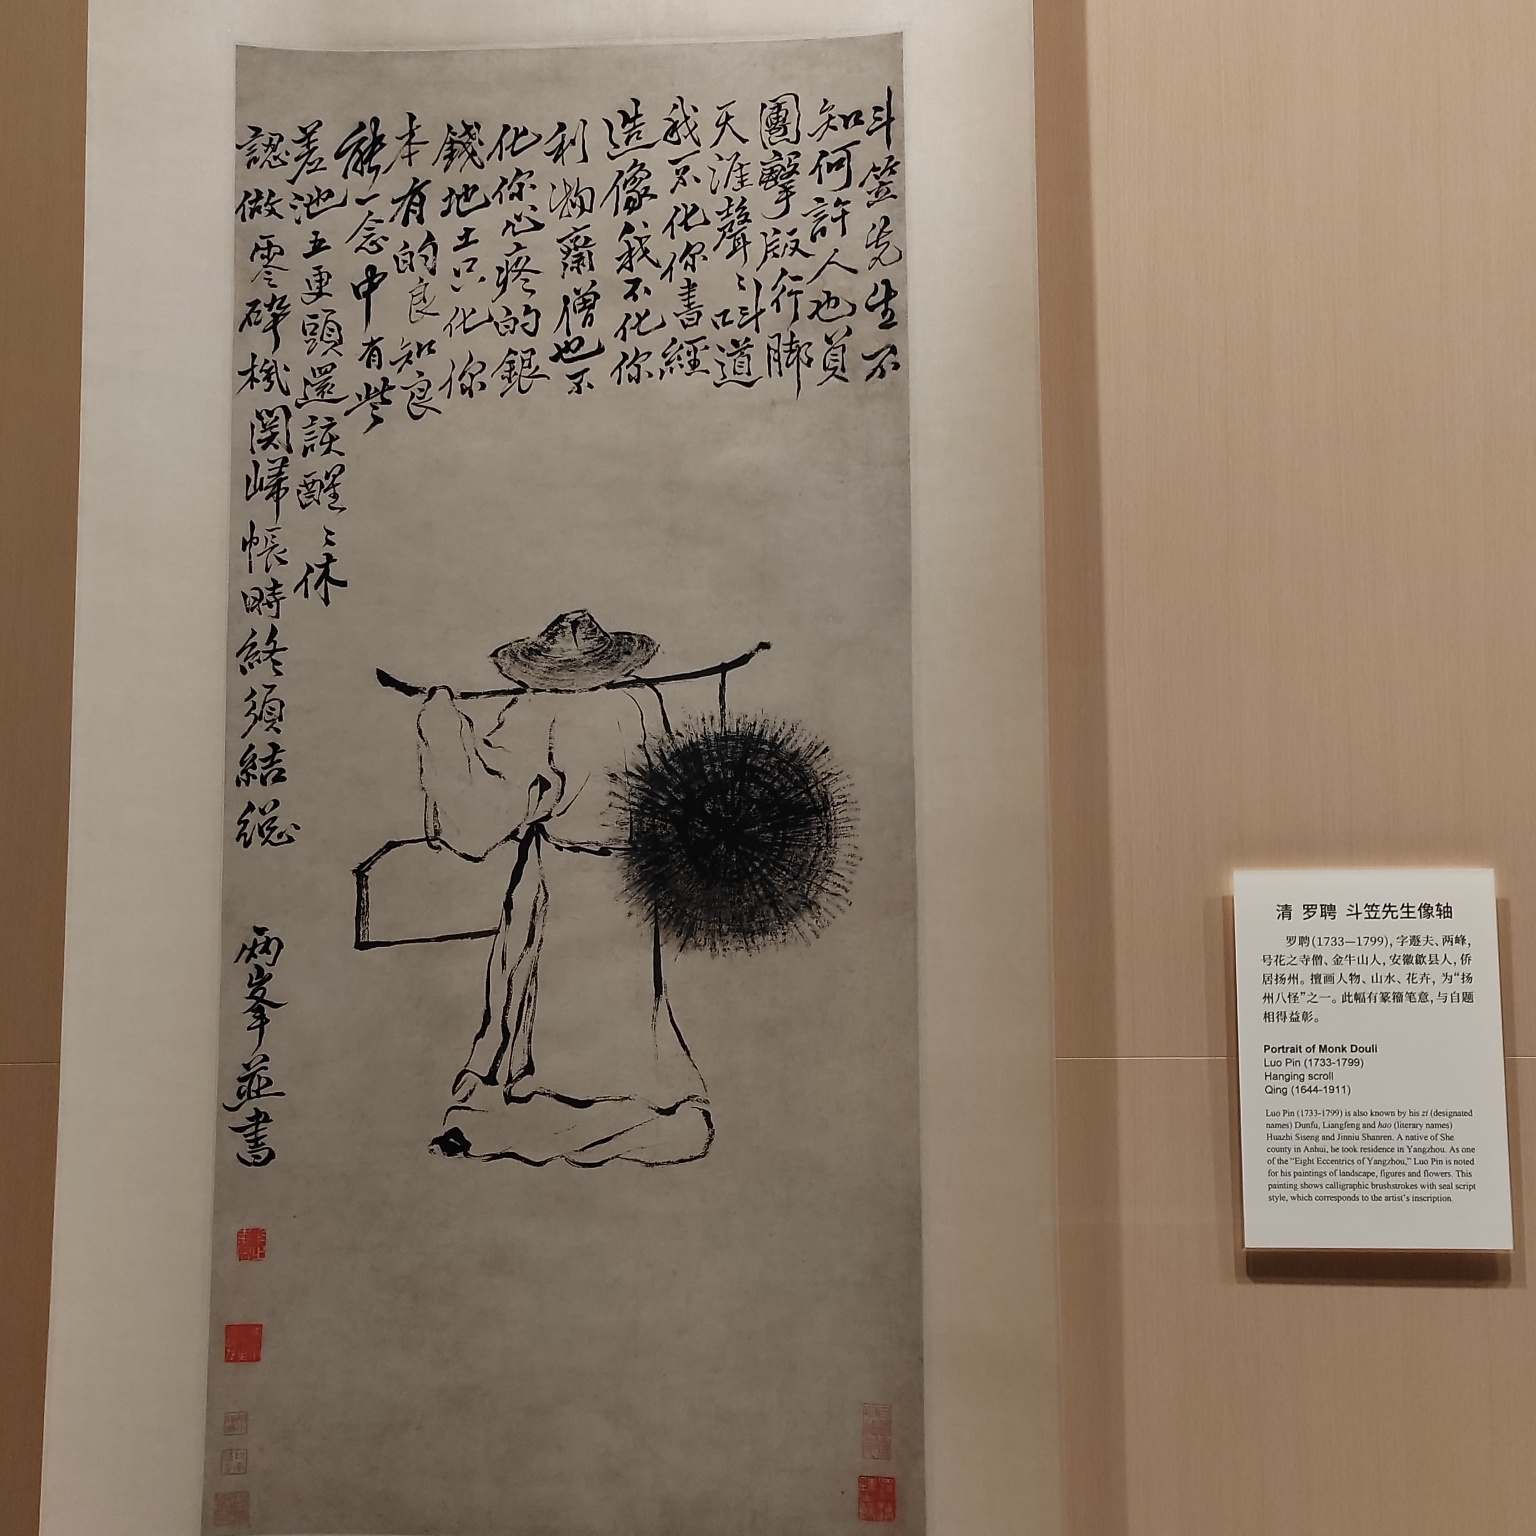 斗笠先生不
知何許人也負
團擊版行脚
天涯聲〻叫道
我不化你書經
造像我不化你
利物齋僧也不
化你心疼的銀
錢地土只化你
本有的良知良
能一念中有些
差池五更頭還該醒〻休
認做零碎機関歸帳時終須結總
兩峯並書
清 罗聘 斗笠先生像轴
罗聘(1733—1799),字遯夫、两峰,
号花之寺僧、金牛山人,安徽歙县人,侨
居扬州。擅画人物、山水、花卉,为“扬
州八怪”之一。此幅有篆籀笔意,与自题
相得益彰。
Portrait of Monk Douli
Luo Pin (1733-1799)
Hanging scroll
Qing (1644-1911)
Luo Pin (1733-1799) is also known by his zi (designated
names) Dunfu, Liangfeng and hao (literary names)
Huazhi Siseng and Jinniu Shanren. A native of She
county in Anhui, he took residence in Yangzhou. As one
of the "Eight Eccentrics of Yangzhou," Luo Pin is noted
for his paintings of landscape, figures and flowers. This
painting shows calligraphic brushstrokes with seal script
style, which corresponds to the artist's inscription.